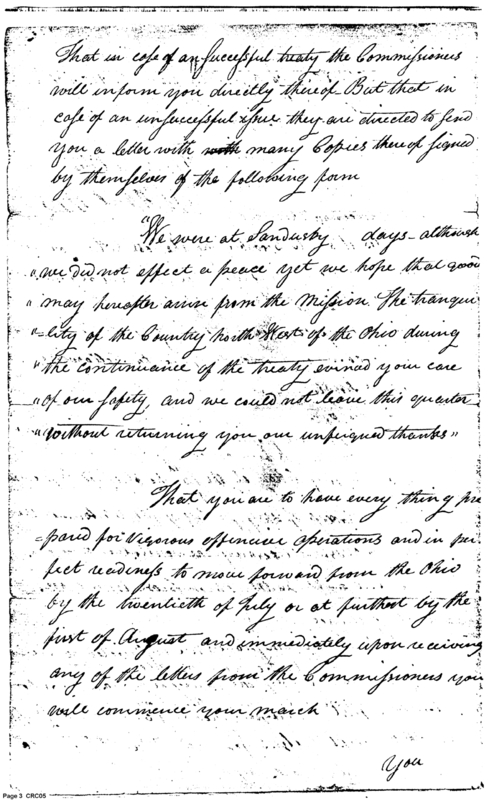 That in case of an successful treaty the Commissioners
will inform you directly thereof But that in
case of an unsuccessful issue they are directed to send
you a letter with with many Copies thereof signed
by themselves of the following form
"We were at Sandusky days - although
" we did not effect a peace yet we hope that good
" may hereafter arise from the Mission. The tranqui
"=lity of the Country North West of the Ohio during
" the continuance of the treaty evinced your care
" of our safety, and we could not leave this quarter
" without returning you our unfeigned thanks "
That you are to have every thing pre
=pared for vigorous offensive operations and in per
fect readiness to move forward from the Ohio
by the twentieth of July or at furthest by the
first of August and immediately upon receiving
any of the letters from the Commissioners you
will commence your march
You
Page 3 CRC05